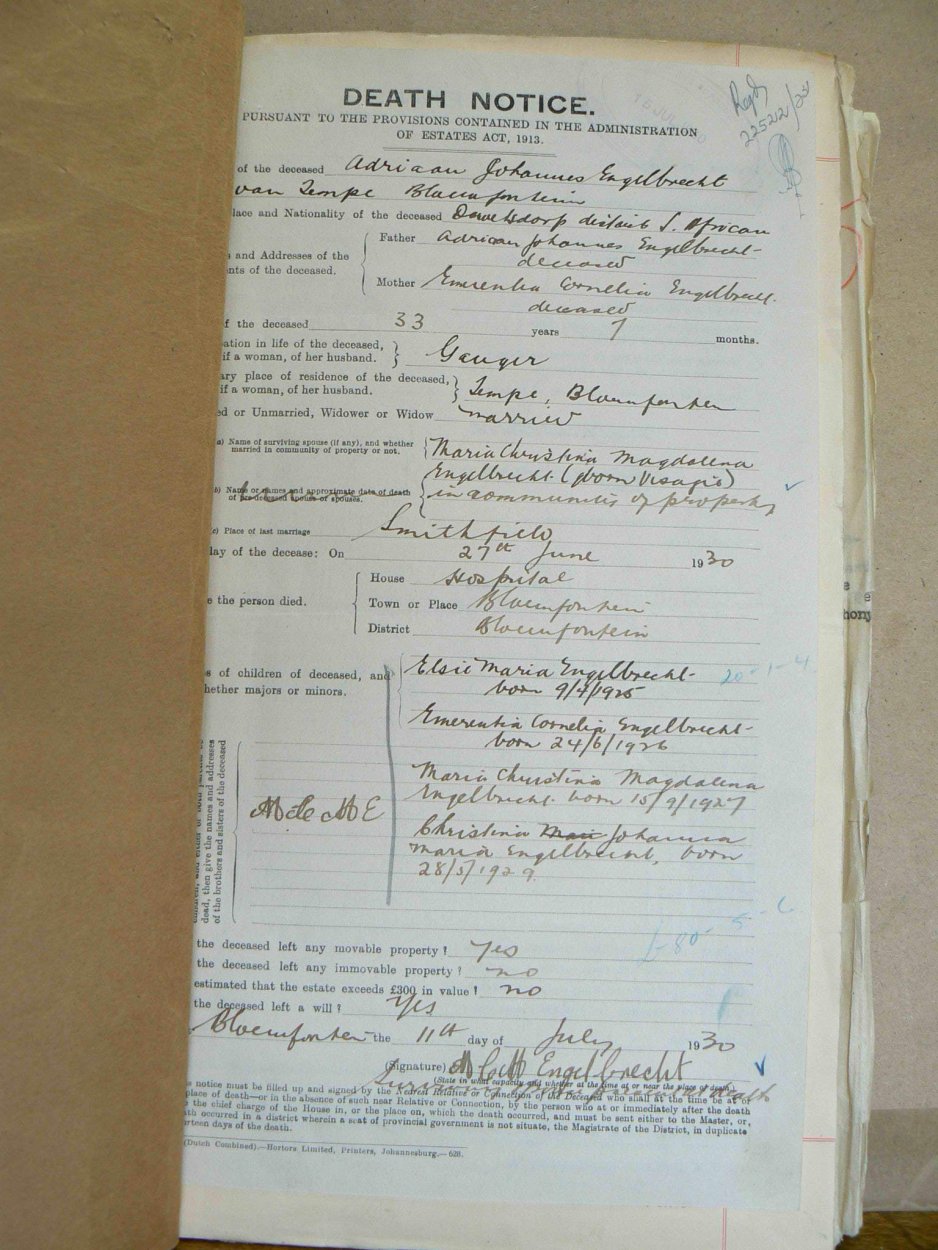 DEATH NOTICE.
PURSUANT TO THE PROVISIONS CONTAINED IN THE ADMINISTRATION
OF ESTATES ACT, 1913.
Regd
22522/
of the deceased Adriaan Johannes Engelbrecht
van Tempe Bloemfontein
lace and Nationality of the deceased Dewetsdorp district S. African
Father Adriaan Johannes Engelbrecht
deceased
s and Addresses of the
ents of the deceased.
Mother Emerentia Cornelia Engelbrecht
deceased
f the deceased 33 years 7 months.
ation in life of the deceased,
if a woman, of her husband. Ganger
ary place of residence of the deceased,
if a woman, of her husband. Tempe, Bloemfontein
ed or Unmarried, Widower or Widow married
a) Name of surviving spouse (if any), and whether
married in community of property or not.
Maria Christina Magdalena
Engelbrecht (gborn Visagie)
b) Name or names and approximate date of death
of pre-deceased spouse or spouses.
in community of property
(c) Place of last marriage Smithfield
lay of the decease: On 27th June 1930
House Hospital
e the person died. Town or Place Bloemfontein
District Bloemfontein
s of children of deceased, and
hether majors or minors.
Elsie Maria Engelbrecht
born 9/4/1925
Emerentia Cornelia Engelbrecht
born 24/6/1926
Maria Christina Magdalena
Engelbrecht born 15/9/1927
Christina Johanna
Maria Engelbrecht, born
28/5/1929
dead, then give the names and addresses
of the brothers and sisters of the deceased
the deceased left any movable property? Yes
the deceased left any immovable property? no
estimated that the estate exceeds £300 in value? no
the deceased left a will? Yes
Bloemfontein the 11th day of July 1930
(Signature) M C M Engelbrecht
(State in what capacity and whether at the time at or near the place of death).
s notice must be filled up and signed by the Nearest Relative or Connection of the Deceased who shall at the time be at or
place of death—or in the absence of such near Relative or Connection, by the person who at or immediately after the death
the chief charge of the House in, or the place on, which the death occurred, and must be sent either to the Master, or,
ath occurred in a district wherein a seat of provincial government is not situate, the Magistrate of the District, in duplicate
rteen days of the death.
(Dutch Combined).—Hortors Limited, Printers, Johannesburg.—628.